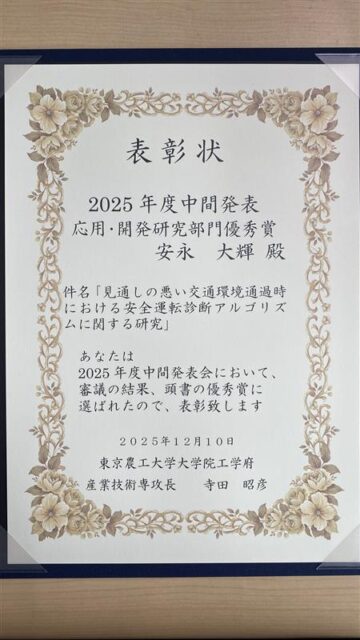 表彰状
2025年度中間発表
応用・開発研究部門優秀賞
安永 大輝 殿
件名「見通しの悪い交通環境通過時
における安全運転診断アルゴリズ
ムに関する研究」
あなたは
2025年度中間発表会において、
審議の結果、頭書の優秀賞に
選ばれたので、表彰致します
2025年12月10日
東京農工大学大学院工学府
産業技術専攻長 寺田 昭彦